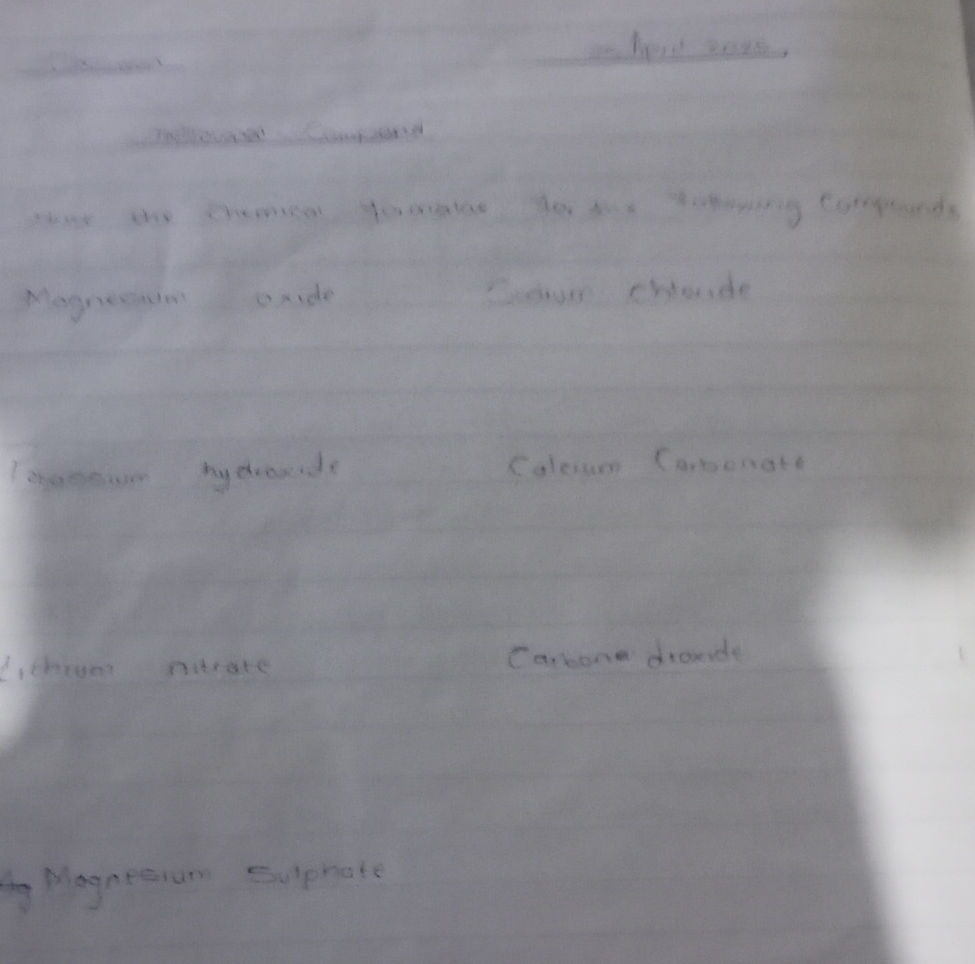 April 2025.
Compound
the Chemical formulae for the following Compounds
Magnesium oxide Sodium Chloride
Potassium hydroxide Calcium Carbonate
Lithium nitrate Carbone dioxide
Magnesium Sulphate